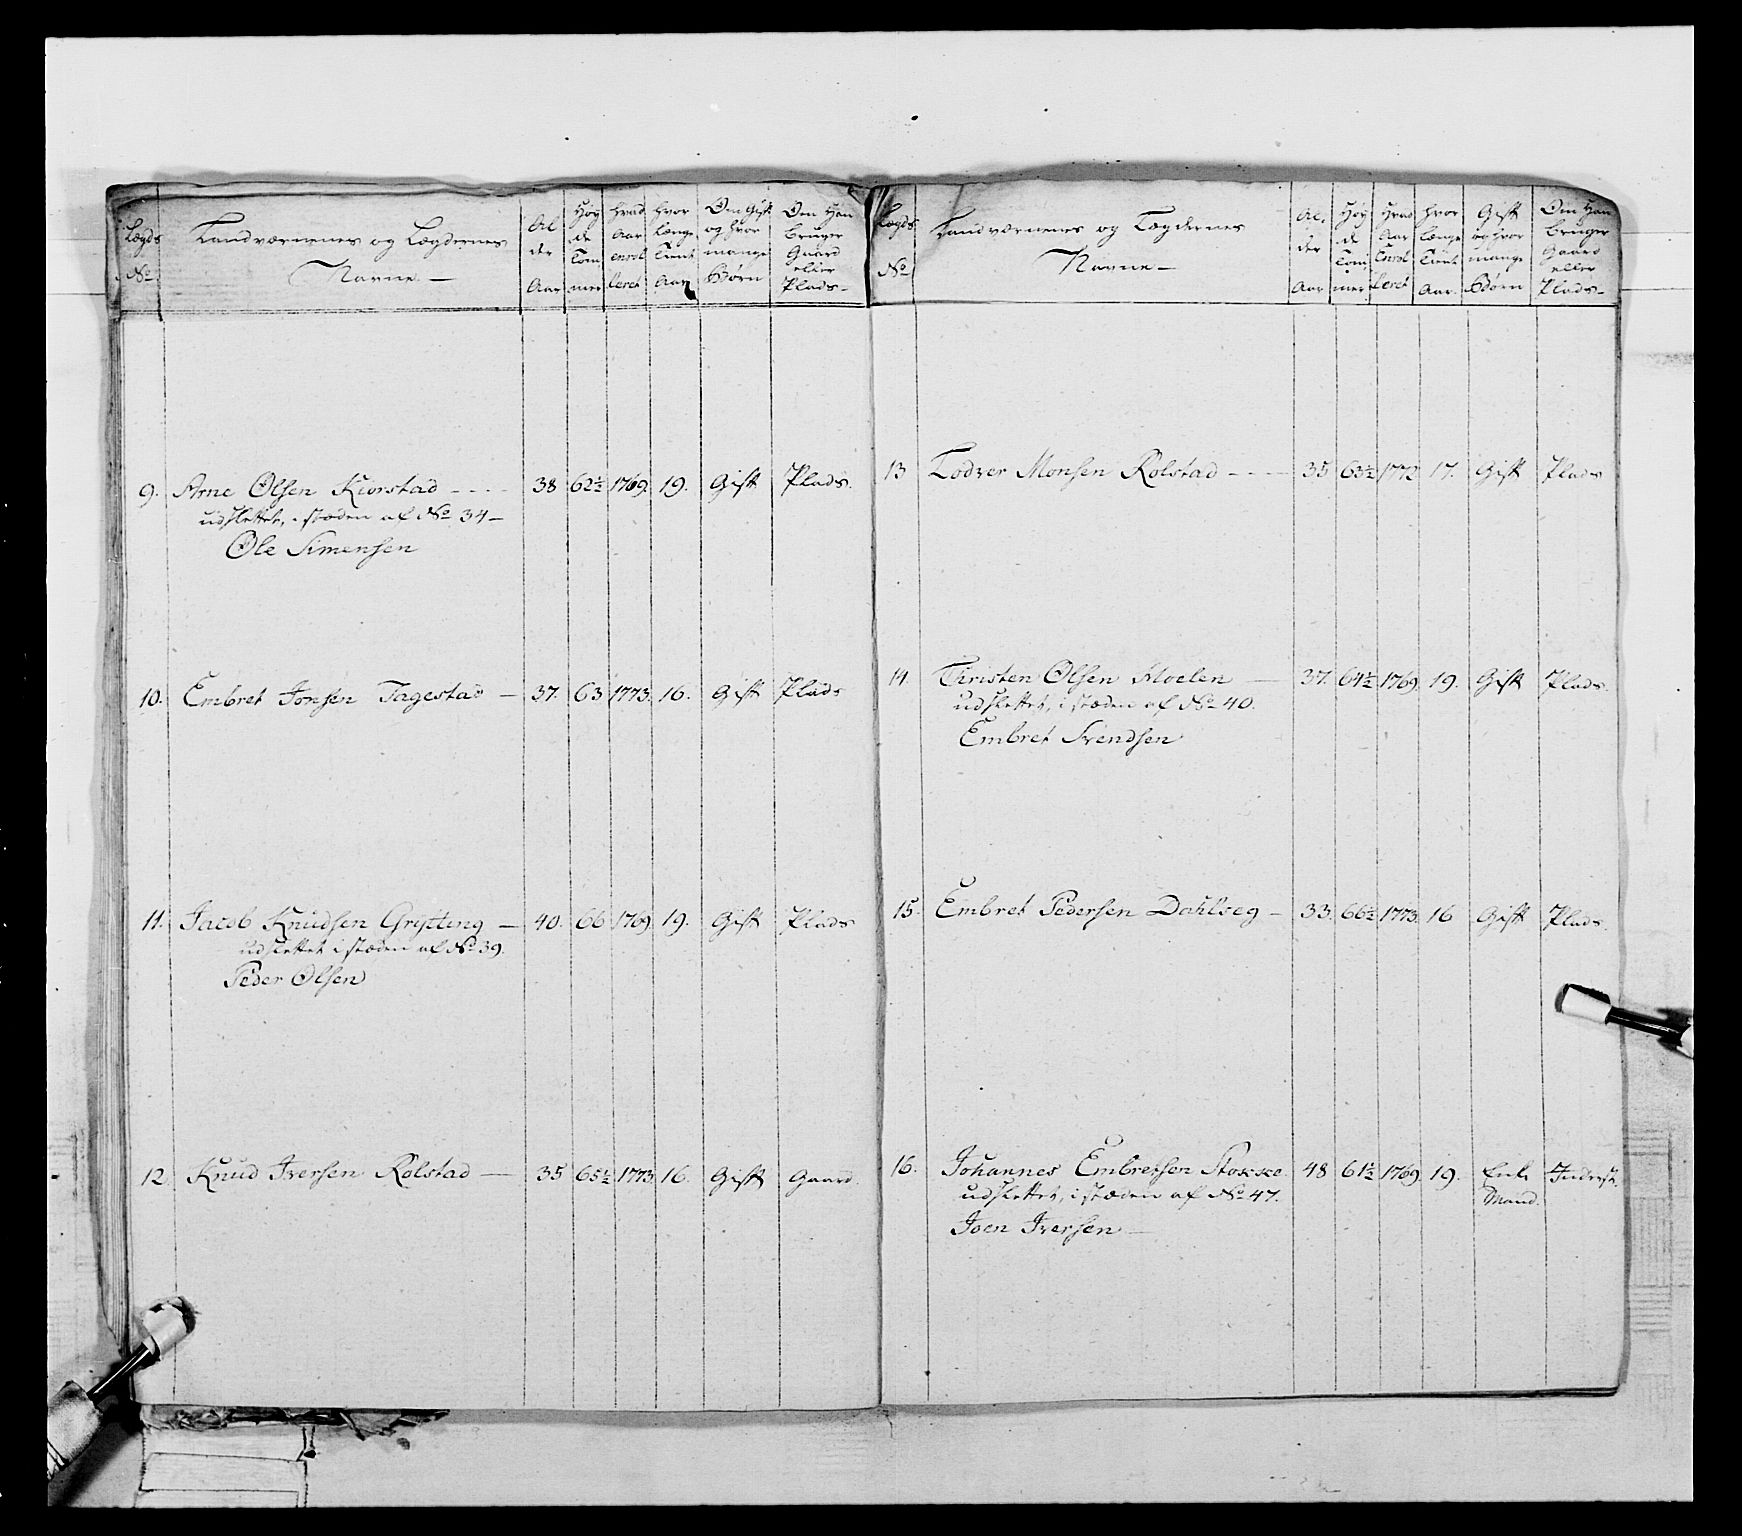 Lægds No | Landværnenes og Lægdernes Navne — | Al der Aar | Høy de Tom mer | hvad Aar enrol leret | hvor længe Tient Aar | Om Gift og hvor mange Børn | Om Han bruger Gaard eller Plads —
9. Arne Olsen Kiorstad - - - - 38 62½ 1769. 19. Gift Plads.
udslettet, i stæden af No 34 —
Ole Simensen
10. Embret Jonsen Tagestad — 37. 63 1773. 16. Gift Plads
11. Jacob Knudsen Grytting — 40. 66 1769. 19. Gift Plads
udslettet i stæden af No 39.
Peder Olsen
12. Knud Iversen Rolstad — 35 65½ 1773. 16. Gift Gaard.
Lægds No | Landværnenes og Lægdernes Navne — | Al der Aar | Høy de Tom mer | Hvad Aar Enrol leret | hvor længe Tient Aar. | Gift og hvor mange Børn | Om Han bruger Gaard eller Plads —
13 Lodver Monsen Rolstad - - - - 35 63½ 1772 17. Gift Plads
14. Christen Olsen Moelen — 37. 64½ 1769. 19. Gift Plads.
udslettet, i stæden af No 40.
Embret Svendsen
15. Embret Pedersen Dahlseg — 33. 66½ 1773. 16 Gift Plads.
16. Johannes Embretsen Stokke. 48 61½ 1769. 19. Enke Mand. Inderst.
udslettet, i stæden af No 47.
Joen Iversen —